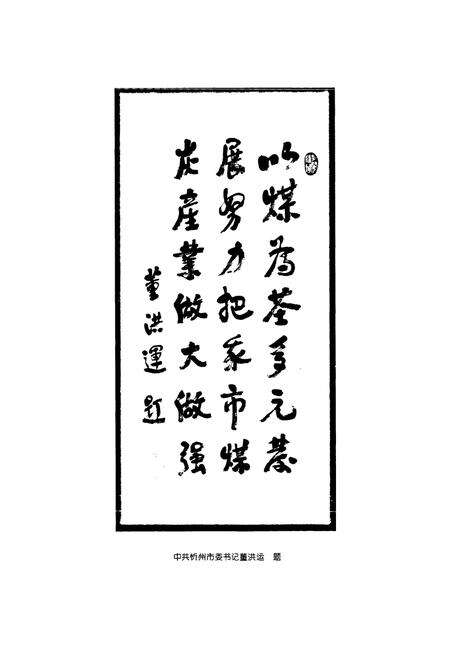 以煤为基多元发
展努力把我市煤
炭産業做大做强
董洪運题
中共忻州市委书记董洪运 题